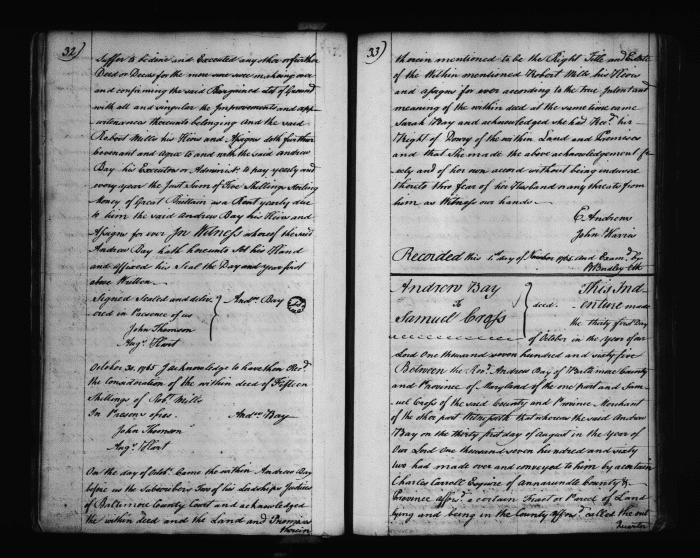 32)
Suffer to be done and Executed any other or further
Deed or Deeds for the more sure making over
and confirming the said Bargained Lot of Ground
with all and singular the Improvements and app-
urtenances thereunto belonging And the said
Robert Mills his Heirs and Assigns doth further
Covenant and Agree to and with the said Andrew
Bay his Executors or Administ. to pay yearly and
every year the Just Sum of Five Shillings Sterling
Money of Great Brittain as a Rent yearly due
to him the said Andrew Bay his Heirs and
Assigns for ever In Witness whereof the said
Andrew Bay hath hereunto set his Hand
and affixed his Seal the Day and year first
above Written
Signed Sealed and deliv-
ered in Presence of us
John Thomson
Aug. Hart
And.w Bay
October 31. 1765 I acknowledge to have then Rec.d
the Consideration of the within deed of Fifteen
Shillings of Rob.t Mills
In Presence of us
And.w Bay
John Thomson
Aug. Hart
On the day of Octob.r Came the within Andrew Bay
before us the Subscribers Two of his Lordships Justices
of Baltimore County Court and acknowledged
the within deed and the Land and Premises
therein
33)
therein mentioned to be the Right Title and Estate
of the Within mentioned Robert Mills his Heirs
and assigns for ever according to the true Intent and
meaning of the within deed at the same time came
Sarah Bay and acknowledged she had Rec.d his
Right of Dowry of the within Land and Premises
and that She made the above acknowledgement fr-
eely and of her own accord without being induced
thereto thro fear of her Husband or any threats from
him as Witness our hands
E Andrews
John Havin
Recorded this 1.st day of November 1765. And Exam.d by
B Bradley Clk
Andrew Bay
To
Samuel Cross
deed.
This Ind-
enture made
the thirty first Day
of October in the Year of our
Lord One thousand seven hundred and sixty five
Between the Rev.d Andrew Bay of Baltimore County
and Province of Maryland of the one part and Sam-
uel Cross of the said County and Province Merchant
of the other part Witnesseth that whereas the said Andrew
Bay on the thirty first day of August in the Year of
Our Lord One thousand seven hundred and sixty
two had made over and conveyed to him by a certain
Charles Carroll Esquire of annarundle County &
Province affors.d a certain Tract or Parcel of Land
lying and being in the County affors.d called the out
Quarter